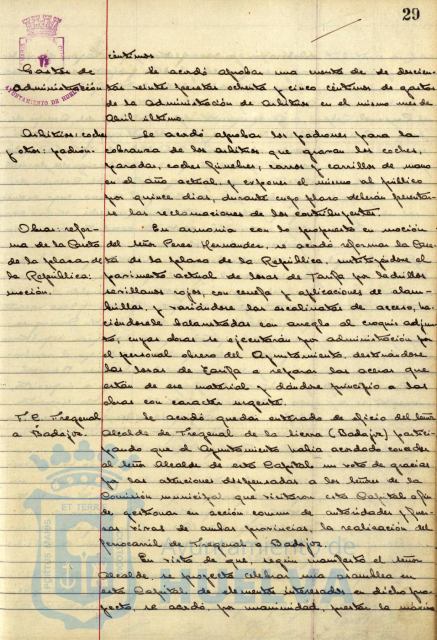 29
céntimos
Gastos de
Administración
Se acordó aprobar una cuenta de doscien-
tas veinte pesetas ochenta y cinco céntimos de gastos
de la Administración de Arbitrios en el mismo mes de
Abril último.
Arbitrios: coches
y otros: padrón.
Se acordó aprobar los padrones para la
cobranza de los arbitrios que gravan los coches,
paradas, coches fúnebres, carros y carrillos de mano
en el año actual, y exponer el mismo al público
por quince días, durante cuyo plazo deberán presentar-
se las reclamaciones de los contribuyentes.
Obras: refor-
ma de la Cuesta
de la plaza de
la República:
moción.
En armonía con lo propuesto en moción
del Señor Perez Hernandez, se acordó reformar la Cues-
ta de la plaza de la República, sustituyéndose el
pavimento actual de losas de Tarifa por ladrillos
sevillanos rojos, con cenefa y aplicaciones de alam-
brillas, y variándose las escalinatas de acceso, ha-
ciéndosele balaustradas con arreglo al croquis adjun-
to, cuyas obras se ejecutarán por administración por
el personal obrero del Ayuntamiento, destinándose
las losas de Tarifa a reparar las aceras que
están de ese material y dándose principio a las
obras con carácter urgente.
F. C. Fregenal
a Badajoz.
Se acordó quedar enterado de oficio del Señor
Alcalde de Fregenal de la Sierra (Badajoz) partici-
pando que el Ayuntamiento había acordado conceder
al Señor Alcalde de esta Capital un voto de gracias
por las atenciones dispensadas a los Señores de la
Comisión municipal que visitaron esta Capital a fin
de gestionar en acción común de autoridades y fuer-
zas vivas de ambas provincias, la realización del
ferrocarril de Fregenal a Badajoz.
En vista de que, según manifestó el Señor
Alcalde, se proyecta celebrar una asamblea en
esta Capital, de elementos interesados en dicho pro-
yecto, se acordó, por unanimidad, prestar la máxima